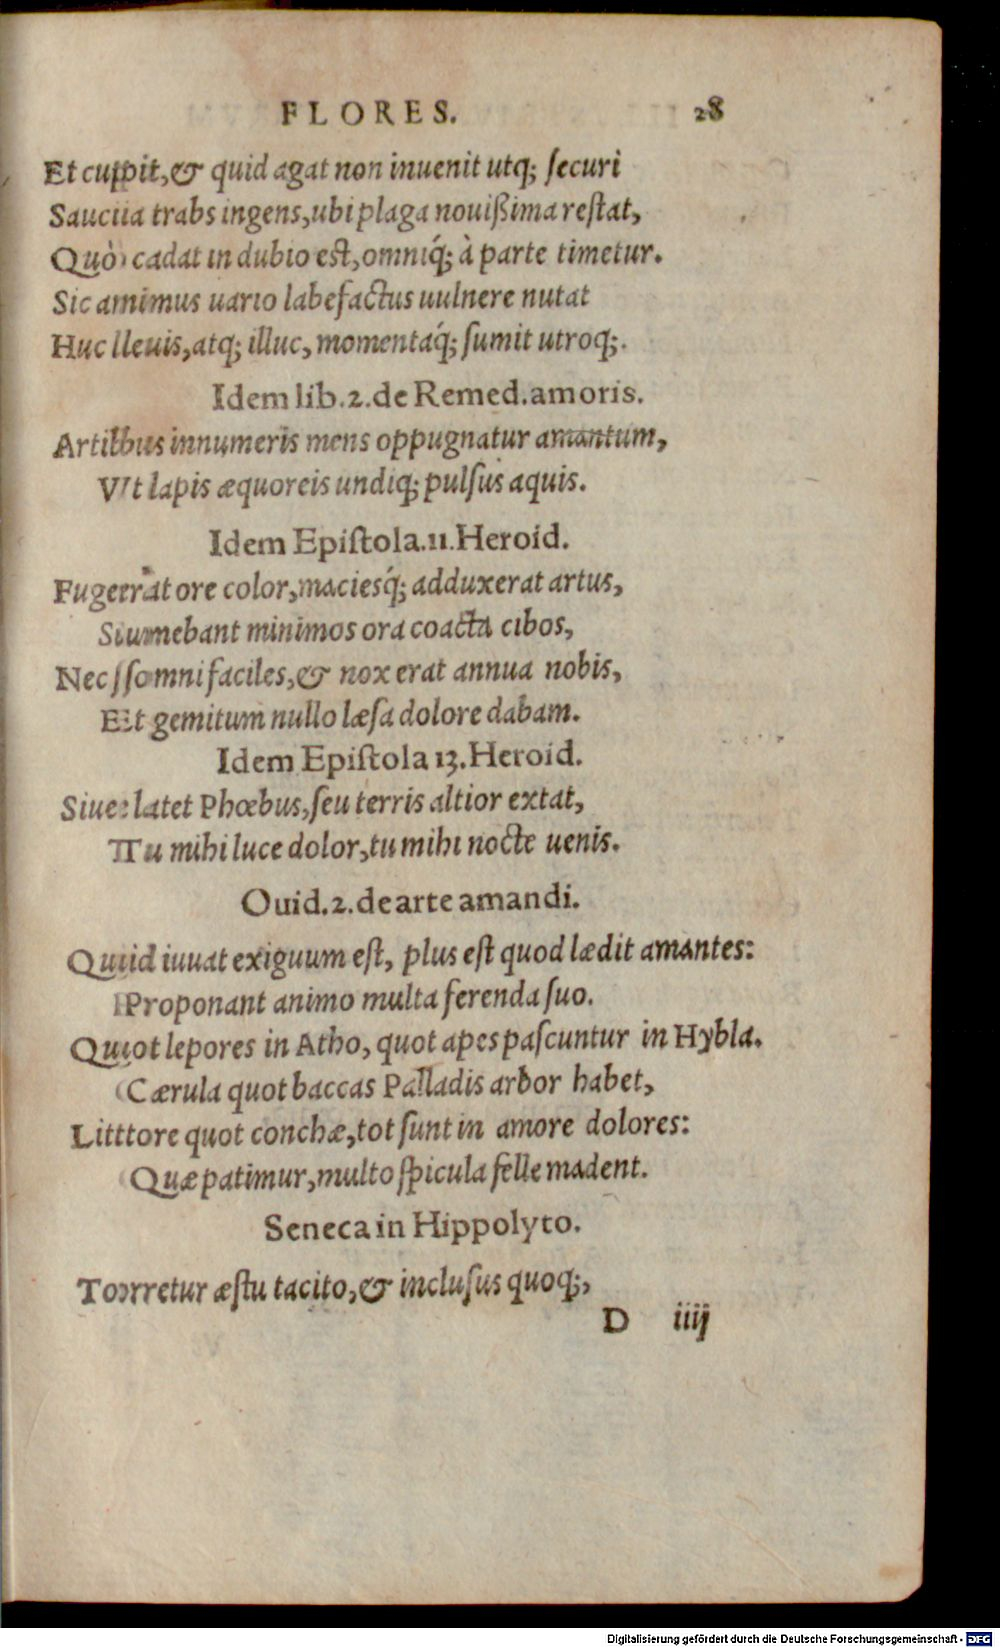 FLORES. 28
Et cupit, & quid agat non inuenit utq; ſecuri
Saucia trabs ingens, ubi plaga nouißima reſtat,
Quò cadat in dubio eſt, omniq́; à parte timetur.
Sic animus uario labefactus uulnere nutat
Huc leuis, atq; illuc, momentaq́; ſumit utroq;.
Idem lib.2.de Remed.amoris.
Artibus innumeris mens oppugnatur amantum,
Vt lapis æquoreis undiq; pulſus aquis.
Idem Epiſtola.11.Heroid.
Fugerat ore color, maciesq́; adduxerat artus,
Sumebant minimos ora coacta cibos,
Nec ſomni faciles, & nox erat annua nobis,
Et gemitum nullo læſa dolore dabam.
Idem Epiſtola 13.Heroid.
Siue latet Phœbus, ſeu terris altior extat,
Tu mihi luce dolor, tu mihi nocte uenis.
Ouid.2.de arte amandi.
Quid iuuat exiguum eſt, plus eſt quod lædit amantes:
Proponant animo multa ferenda ſuo.
Quot lepores in Atho, quot apes paſcuntur in Hybla.
Cærula quot baccas Palladis arbor habet,
Littore quot conchæ, tot ſunt in amore dolores:
Quæ patimur, multo ſpicula felle madent.
Seneca in Hippolyto.
Torretur æſtu tacito, & incluſus quoq;,
D iiij
Digitalisierung gefördert durch die Deutsche Forschungsgemeinschaft - DFG